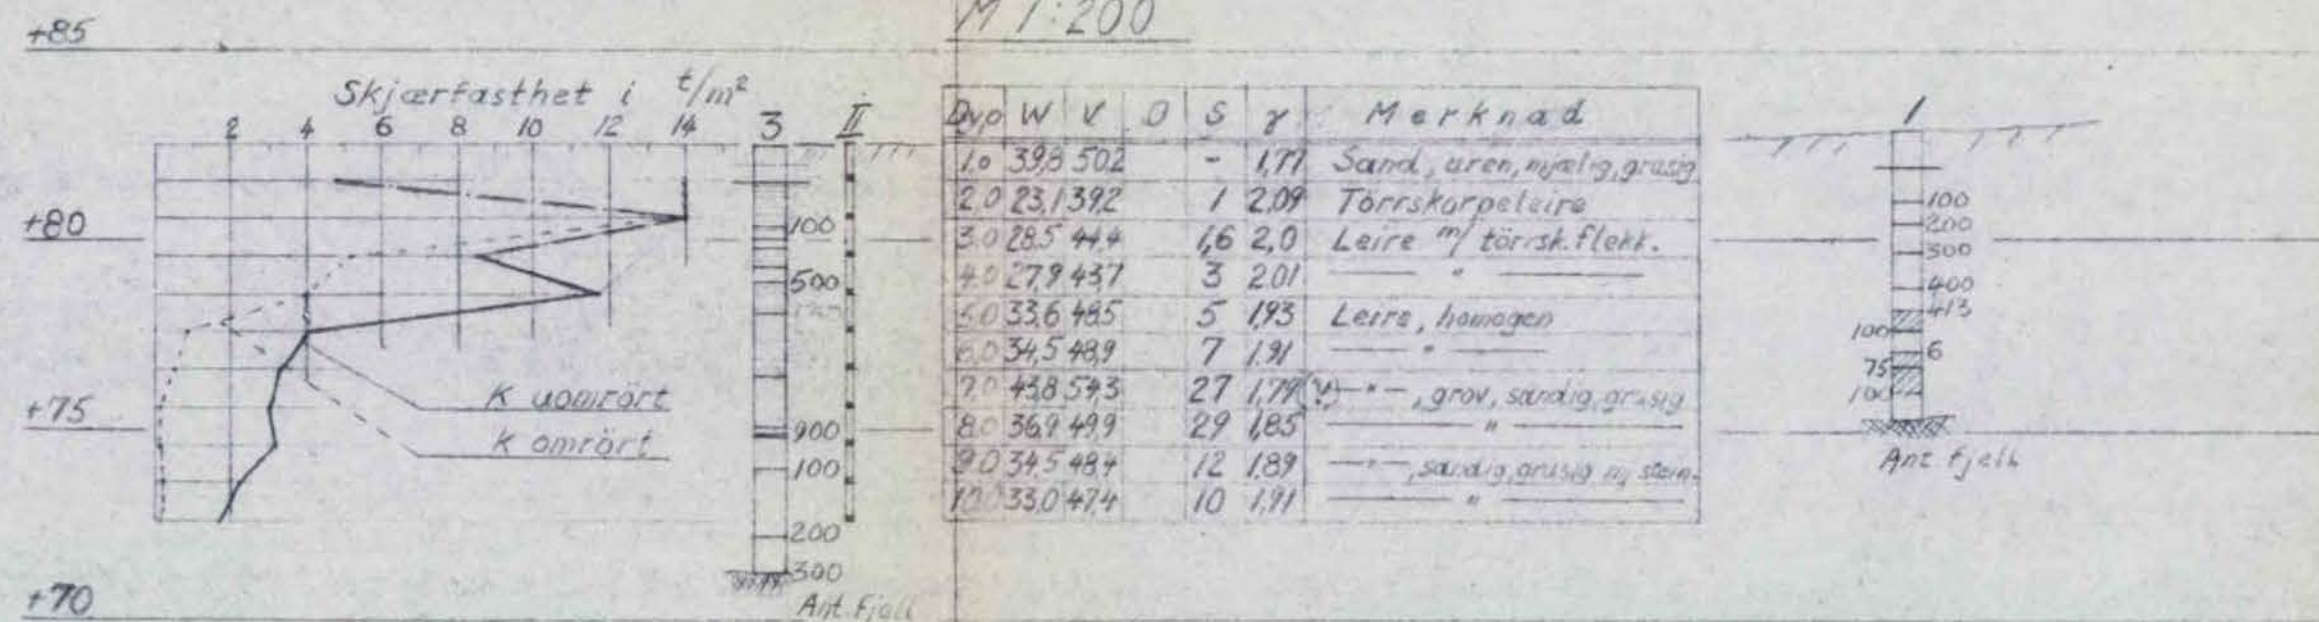 M 1:200
+85
Skjærfasthet i t/m²
2 4 6 8 10 12 14
3 II
+80
100
500
+75
K uomrört
K omrört
900
100
200
300
+70
Ant. Fjell
Dyp W V O S γ Merknad
1.0 39,8 50,2 - 1,77 Sand, uren, mjælig, grusig
2.0 23,1 39,2 1 2,09 Törrskorpeleire
3.0 28,5 44,4 1,6 2,0 Leire m/ törrsk. flekk.
4.0 27,9 43,7 3 2,01 — " —
5.0 33,6 48,5 5 1,93 Leire, homogen
6.0 34,5 48,9 7 1,91 — " —
7.0 43,8 54,3 27 1,79 — " —, grov, sandig, grusig
8.0 36,9 49,9 29 1,85 — " —
9.0 34,5 48,4 12 1,89 — " —, sandig, grusig m/ stein.
10.0 33,0 47,4 10 1,91 — " —
1
100
200
300
400
413
100
6
75
100
Ant fjell